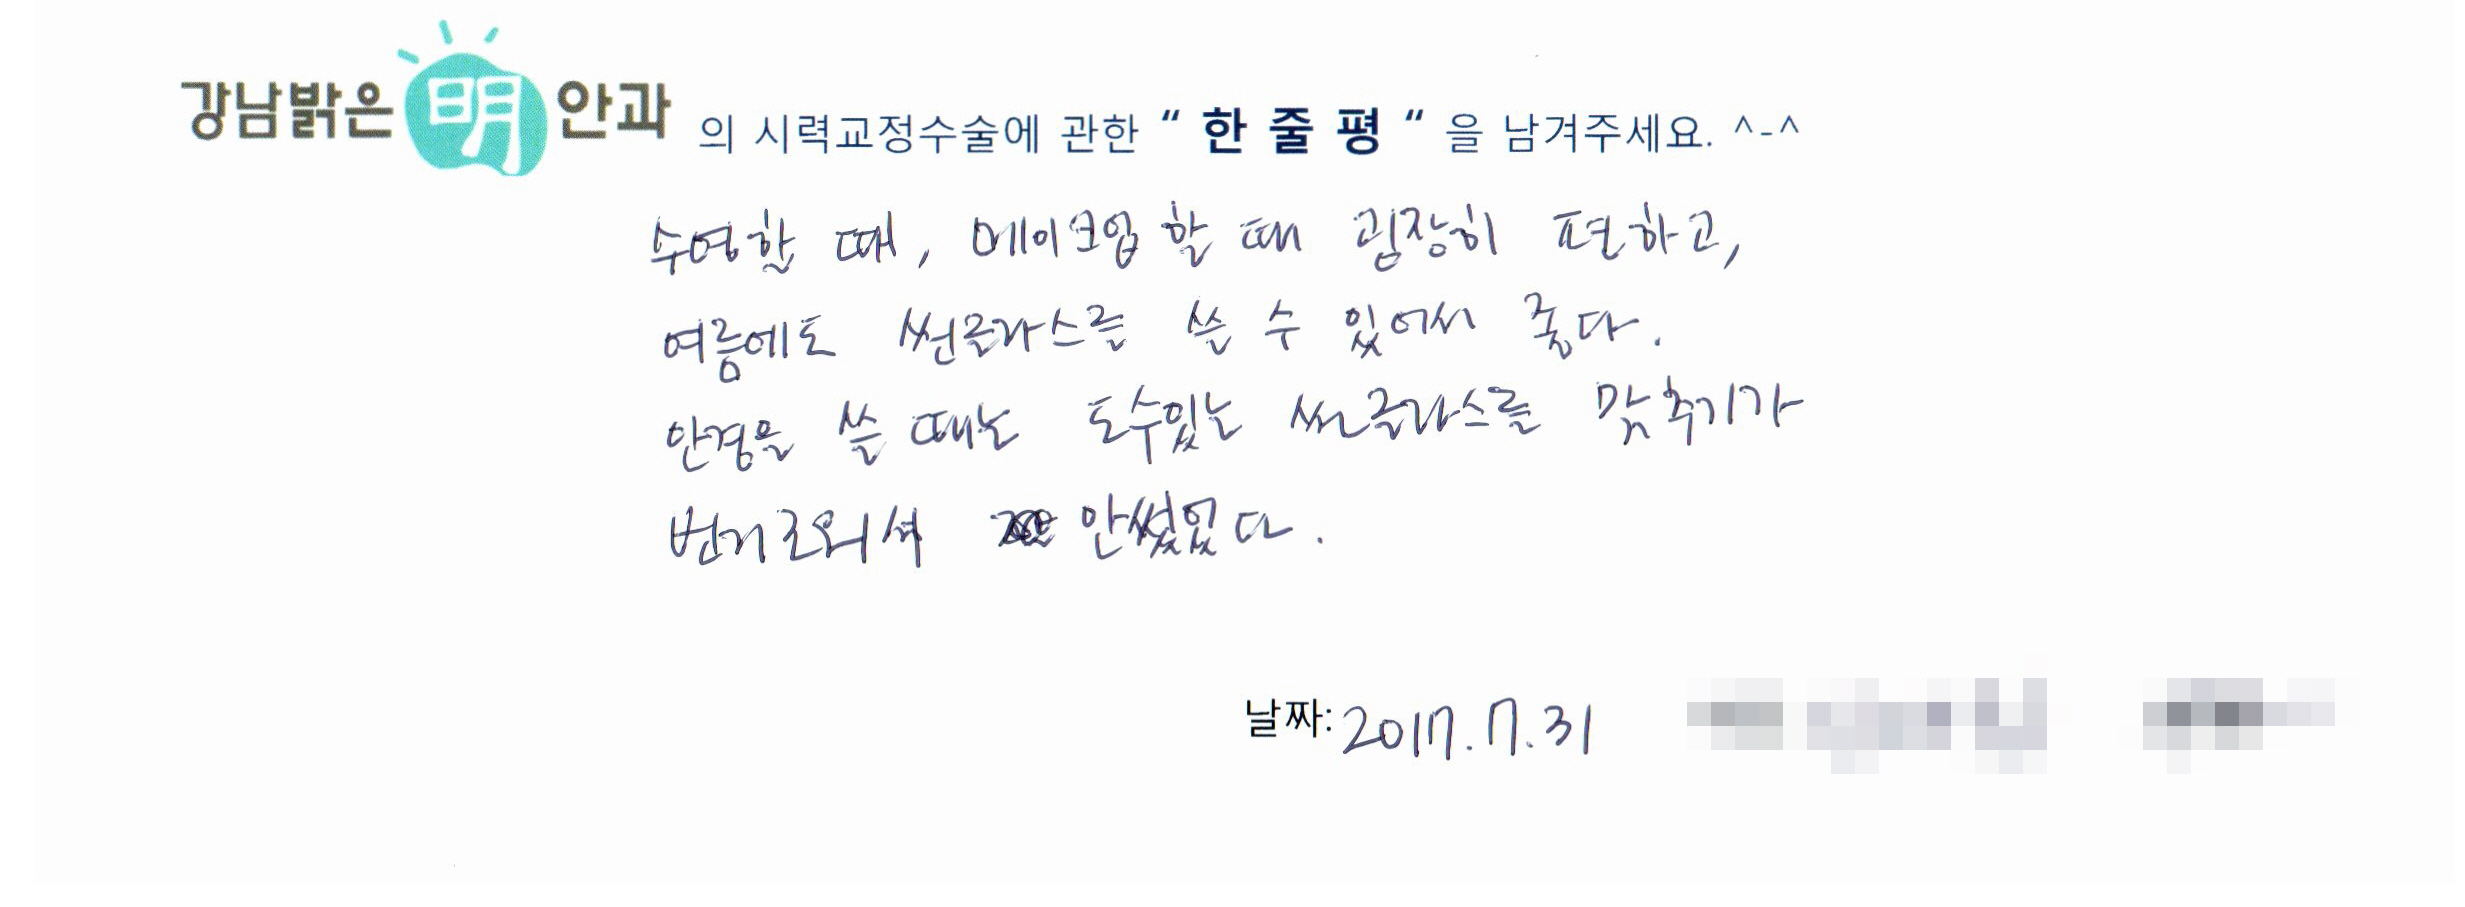 강남밝은 明 안과 의 시력교정수술에 관한 “ 한 줄 평 “ 을 남겨주세요. ^-^
수영할 때, 메이크업 할 때 굉장히 편하고,
여름에도 썬글라스를 쓸 수 있어서 좋다.
안경을 쓸 때는 도수있는 썬글라스를 맞추기가
번거로워서 안썼었다.
날짜: 2017.7.31